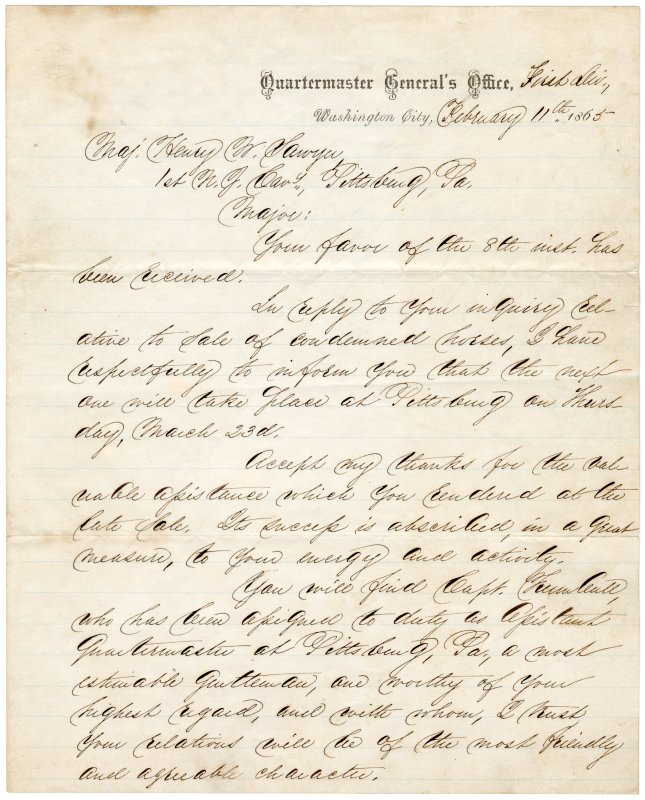 Quartermaster General's Office, First Div.,
Washington City, February 11th 1865
Maj. Henry W. Sawyer,
1st N. J. Cavl., Pittsburg, Pa.
Major:
Your favor of the 8th inst. has
been received.
In reply to your inquiry rel-
ative to sale of condemned horses, I have
respectfully to inform you that the next
one will take place at Pittsburg on Thurs-
day, March 23d.
Accept my thanks for the val-
uable assistance which you rendered at the
late sale. Its success is abscribed, in a great
measure, to your energy and activity.
You will find Capt.
who has been assigned to duty as Assistant
Quartermaster at Pittsburg, Pa., a most
estimable gentleman, one worthy of your
highest regard, and with whom, I trust,
your relations will be of the most friendly
and agreeable character.